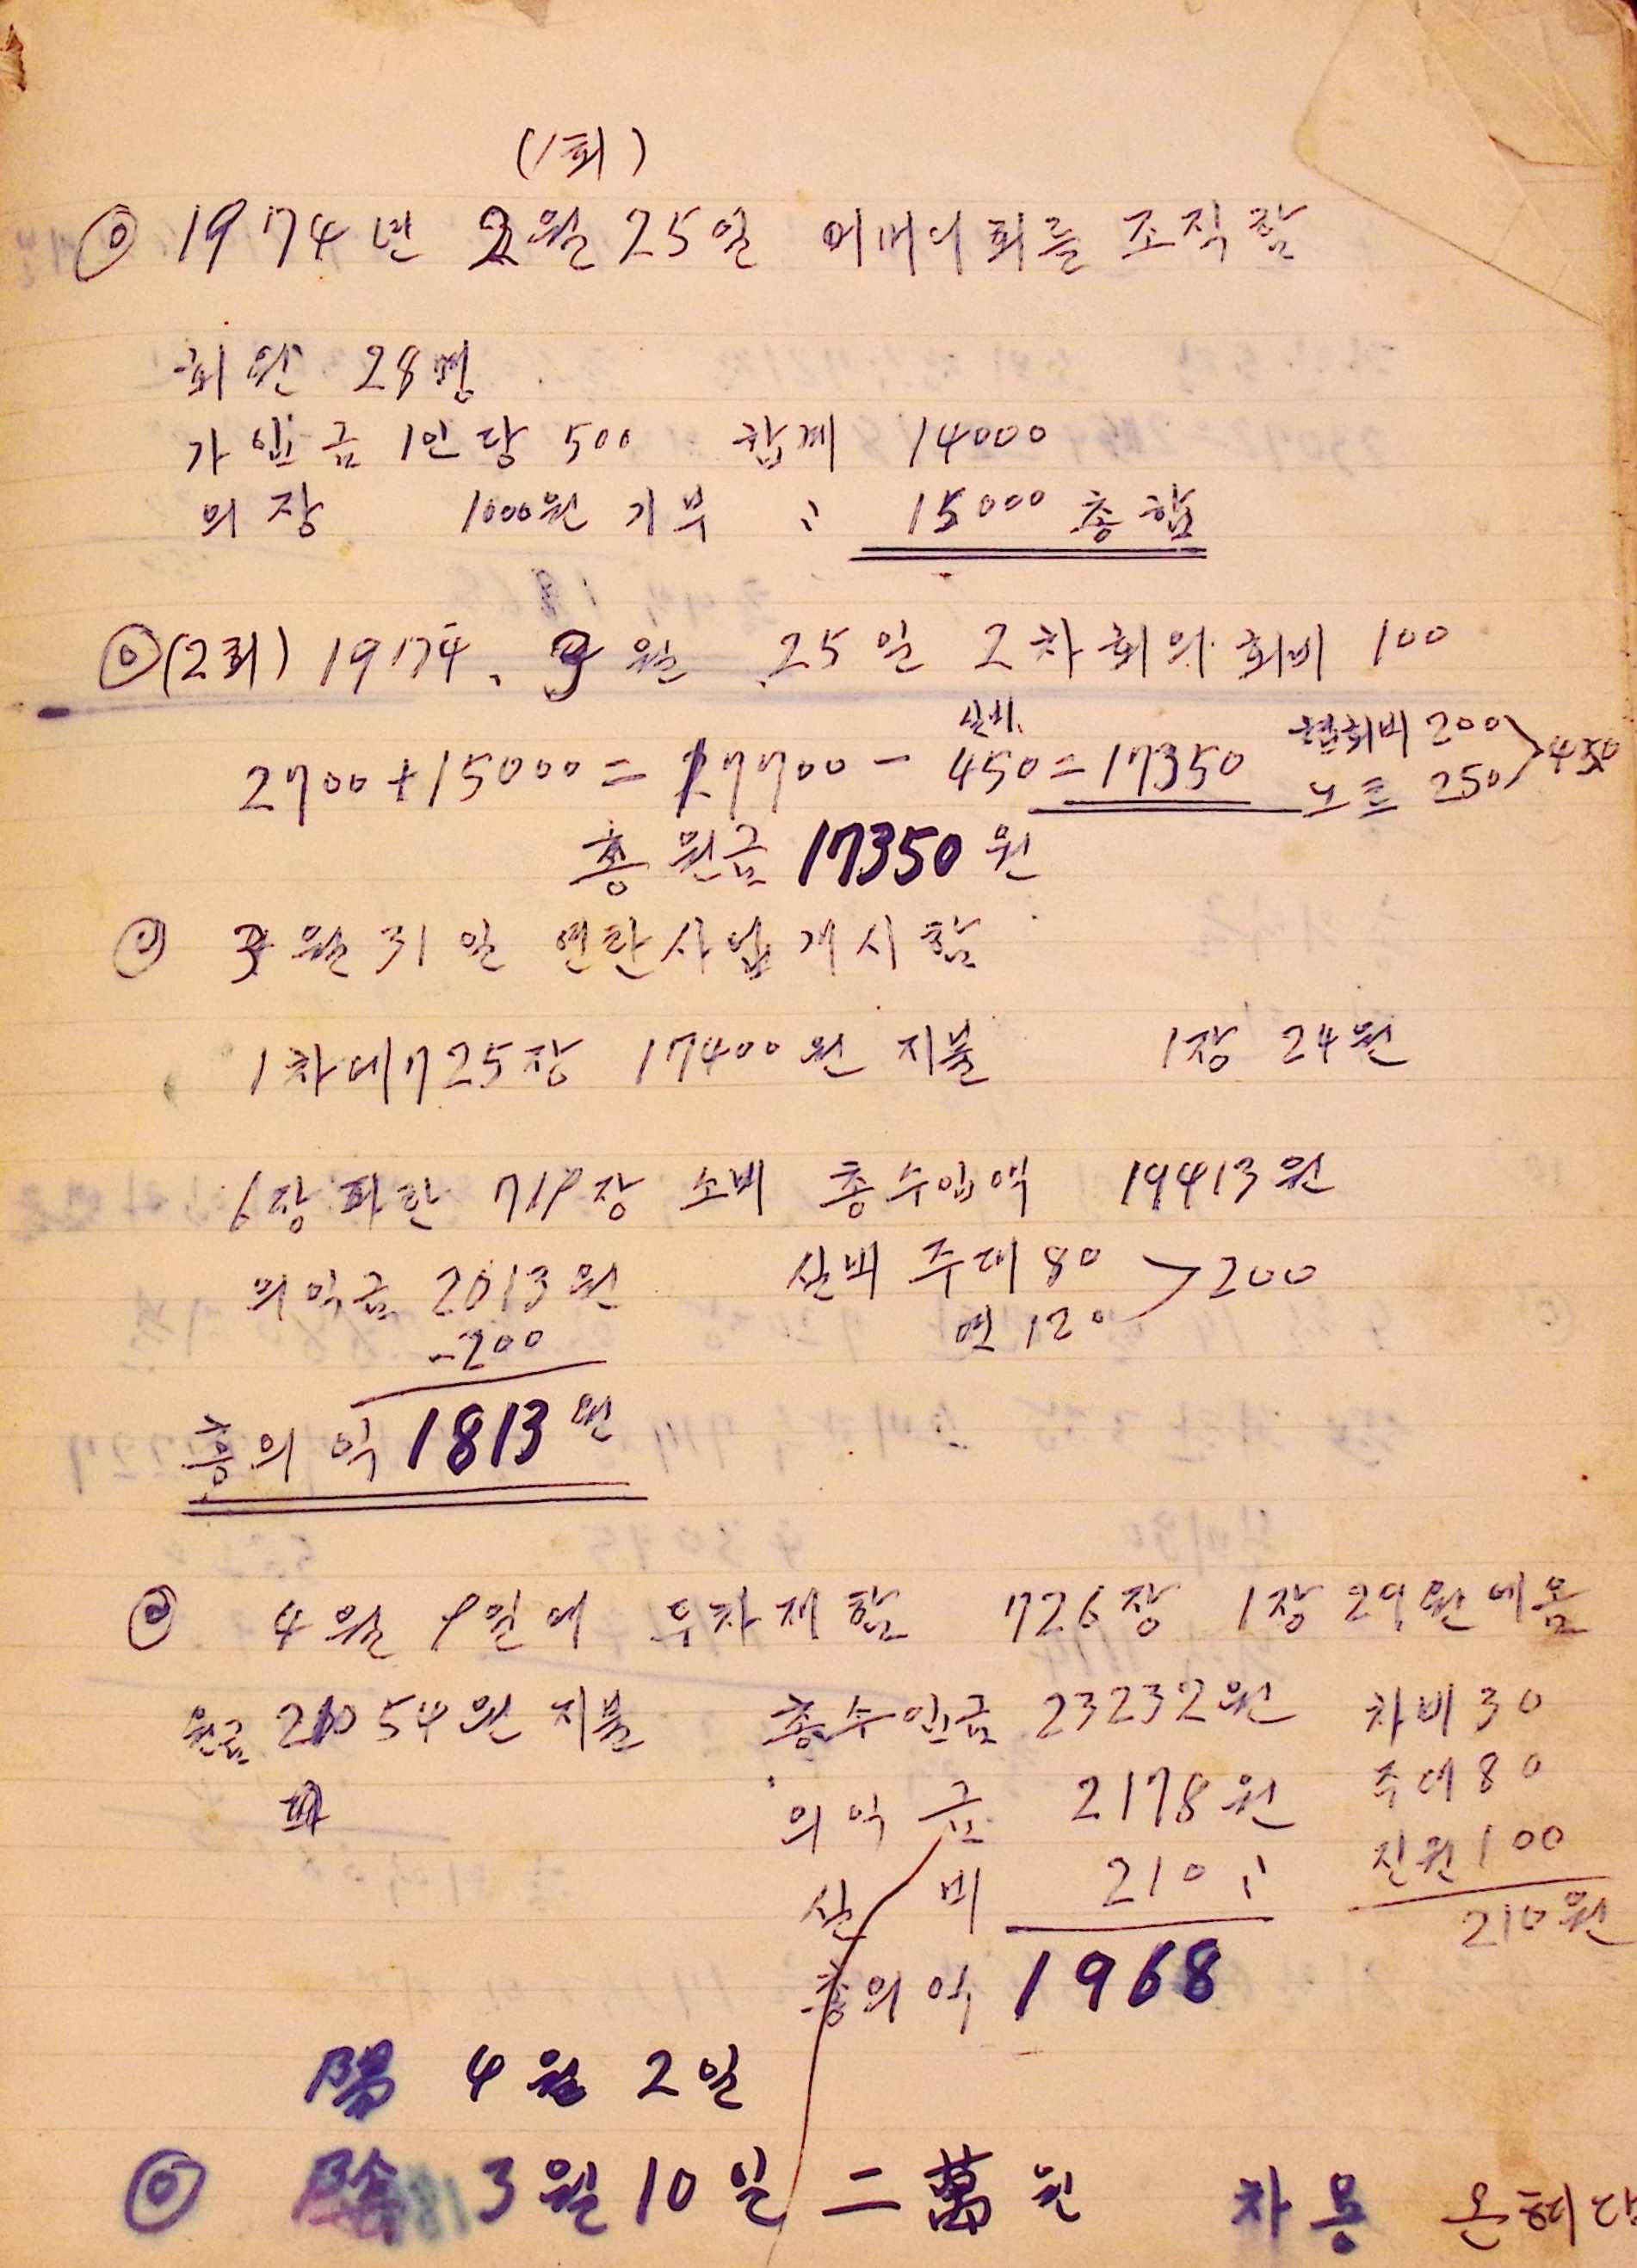 (1회)
◎ 1974년 2월 25일 어머니회를 조직함
회원 28명
가입금 1인당 500 합계 14000
의장 1000원 기부 〃 15000 총합
◎(2회) 1974. 3월 25일 2차회의 회비 100
실비
2700+15000=17700-450=17350 회비 200
노트 250 > 450
총원금 17350원
◎ 3월 31일 연탄사업 개시함
1차에 725장 17400원 지불 1장 24원
6장 파탄 719장 소비 총수입액 19413원
의익금 2013원 실비 주대 80
연 120 > 200
-200
총의익 1813원
◎ 4월 9일에 두차제함 726장 1장 29원에 옴
원금 21054원 지불 총수입금 23232원 차비 30
의익금 2178원 주대 80
실비 210 〃 직원 100
210원
총의익 1968
陽 4월 2일
◎ 陰 3월 10일 二萬원 차용 온혜